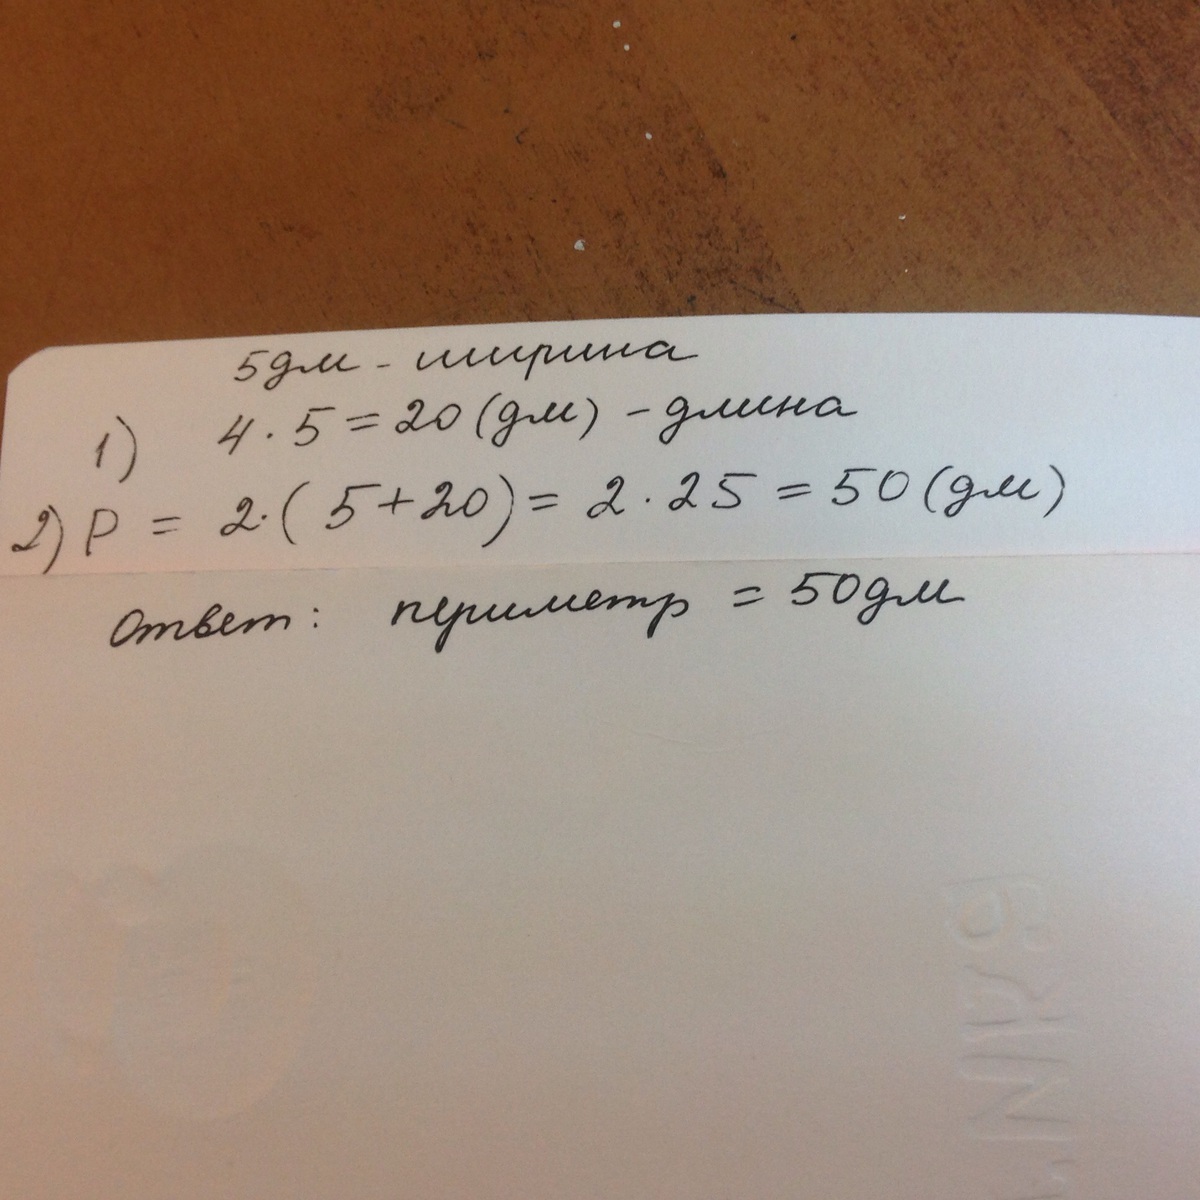 5дм - ширина
1) 4 · 5 = 20 (дм) - длина
2) P = 2·( 5+20) = 2 · 25 = 50 (дм)
Ответ: периметр = 50дм